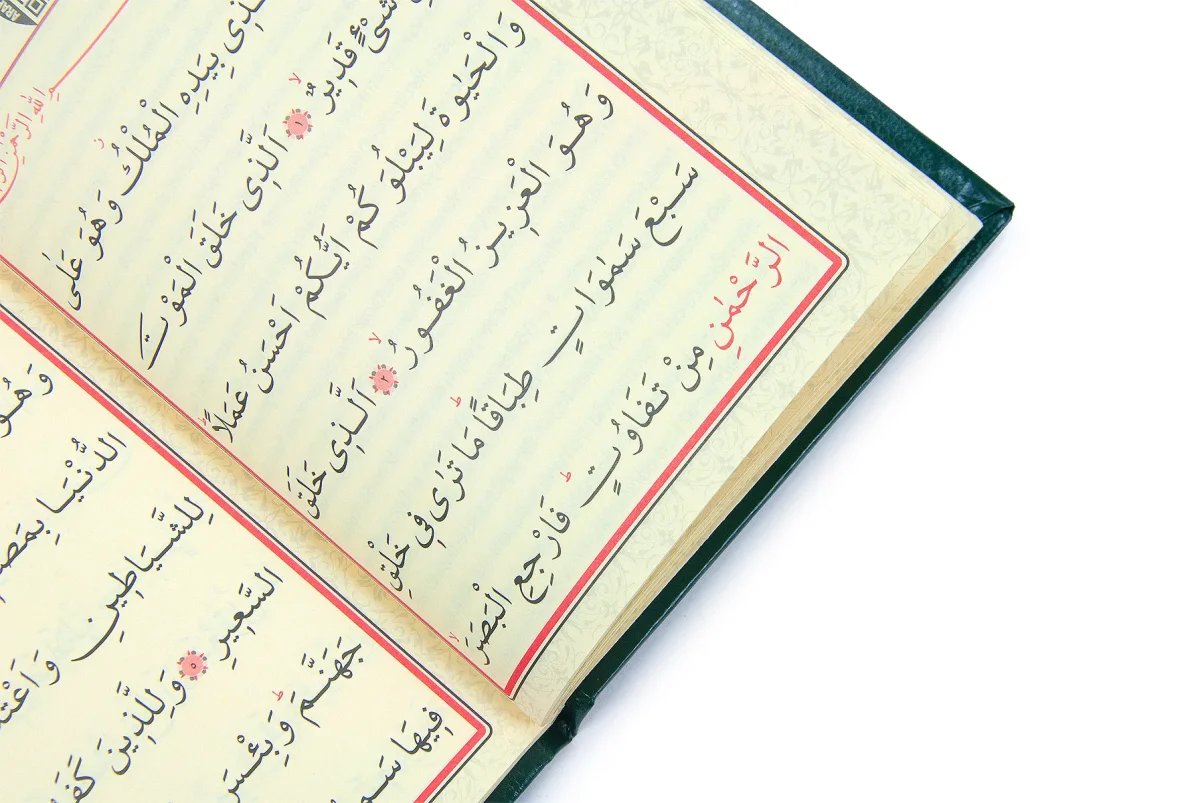 اللّٰهِ الرَّحْمٰنِ
بِيَدِهِ الْمُلْكُۘ وَهُوَ عَلٰى
شَیْءٍ قَدٖيرٌۙ ﴿١﴾ اَلَّذٖى خَلَقَ الْمَوْتَ
وَالْحَيٰوةَ لِيَبْلُوَكُمْ اَيُّكُمْ اَحْسَنُ عَمَلاًؕ
وَهُوَ الْعَزٖيزُ الْغَفُورُۙ ﴿٢﴾ اَلَّذٖى خَلَقَ
سَبْعَ سَمٰوَاتٍ طِبَاقًاؕ مَا تَرٰى فٖى خَلْقِ
الرَّحْمٰنِ مِنْ تَفَاوُتٍؕ فَارْجِعِ الْبَصَرَۙ
وَهُوَ
الدُّنْيَا بِمَصَ
لِلشَّيَاطٖينِ وَاَعْتَ
السَّعٖيرِ ﴿٥﴾ وَلِلَّذٖينَ كَفَ
جَهَنَّمَؕ وَبِئْسَ
فٖيهَا سَمِ